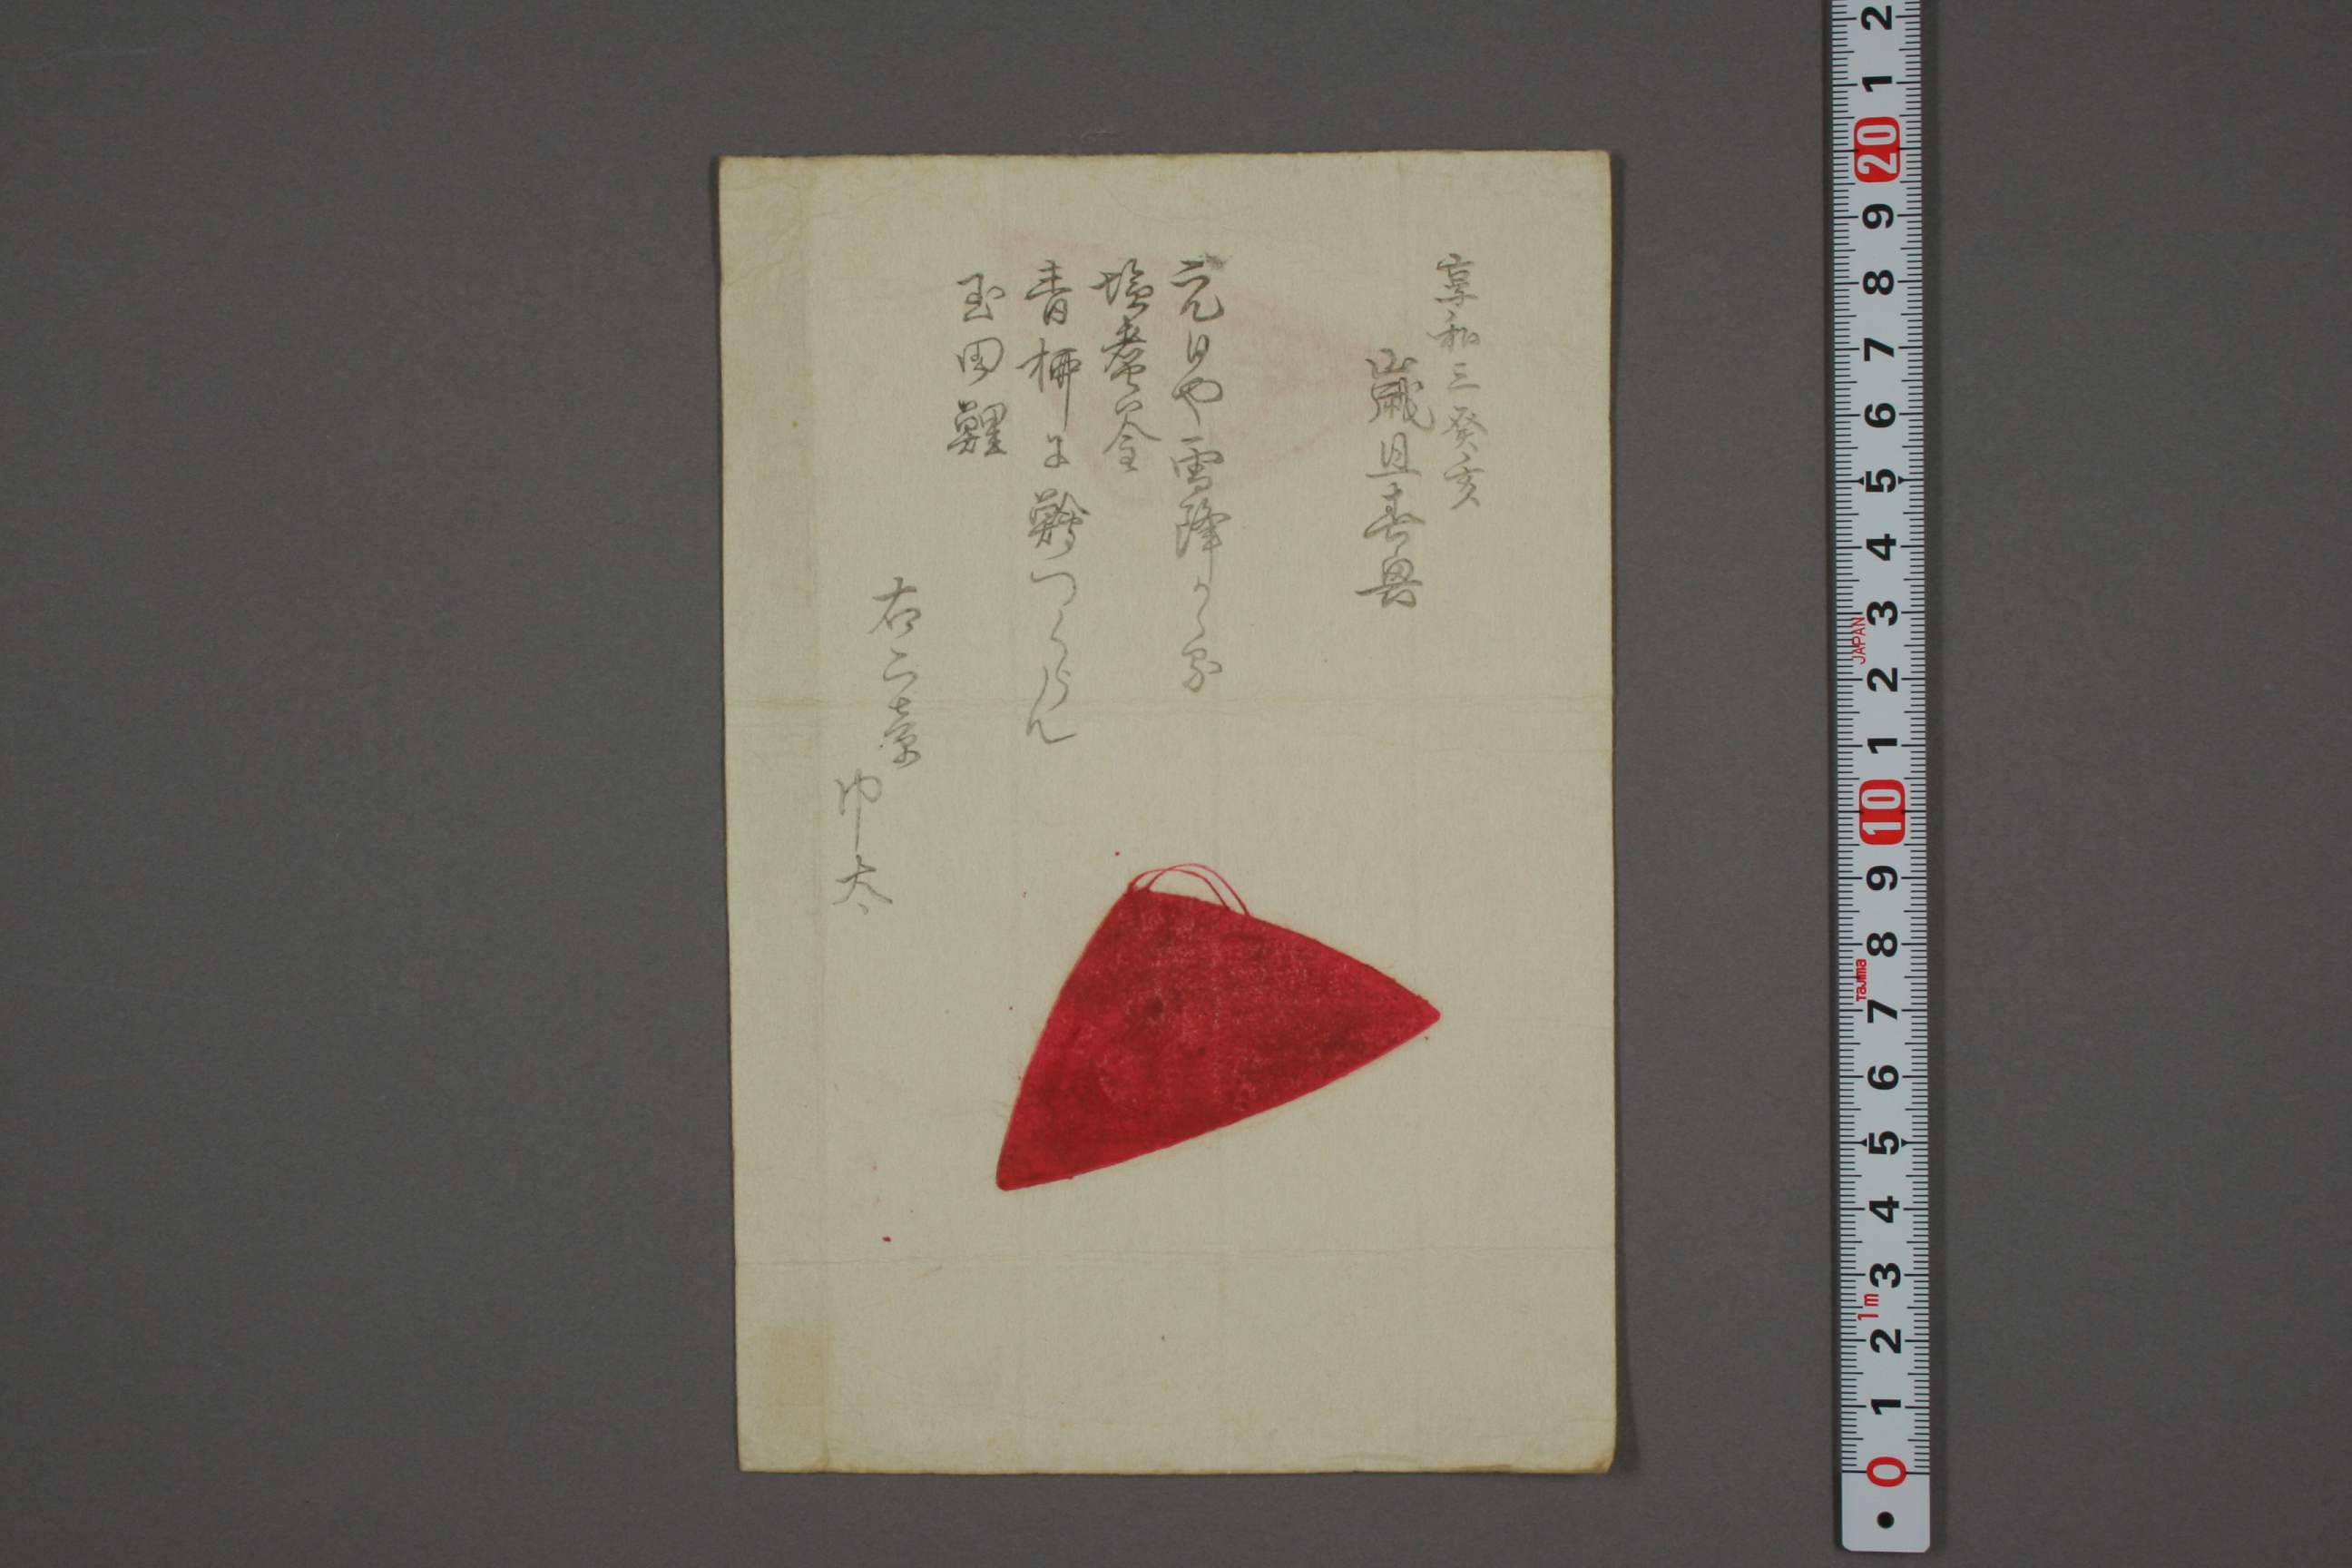 享和三癸亥
歳旦春興
元日や雪降かゝる
塩釜
青柳に つくらん
玉田
右二章
巾太
2
1
20
9
8
7
6
5
4
3
JAPAN
2
1
10
9
8
Tajima
7
6
5
4
3
1m
2
1
0